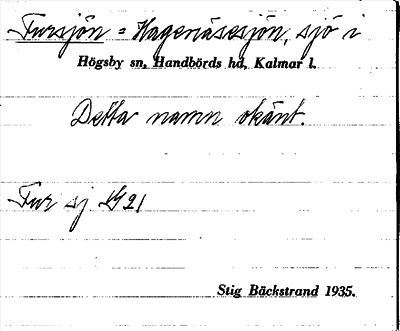 Fursjön = Hagenäsesjön, sjö i
Högsby sn, Handbörds hd, Kalmar l.
Detta namn okänt.
Fur sj 1921
Stig Bäckstrand 1935.